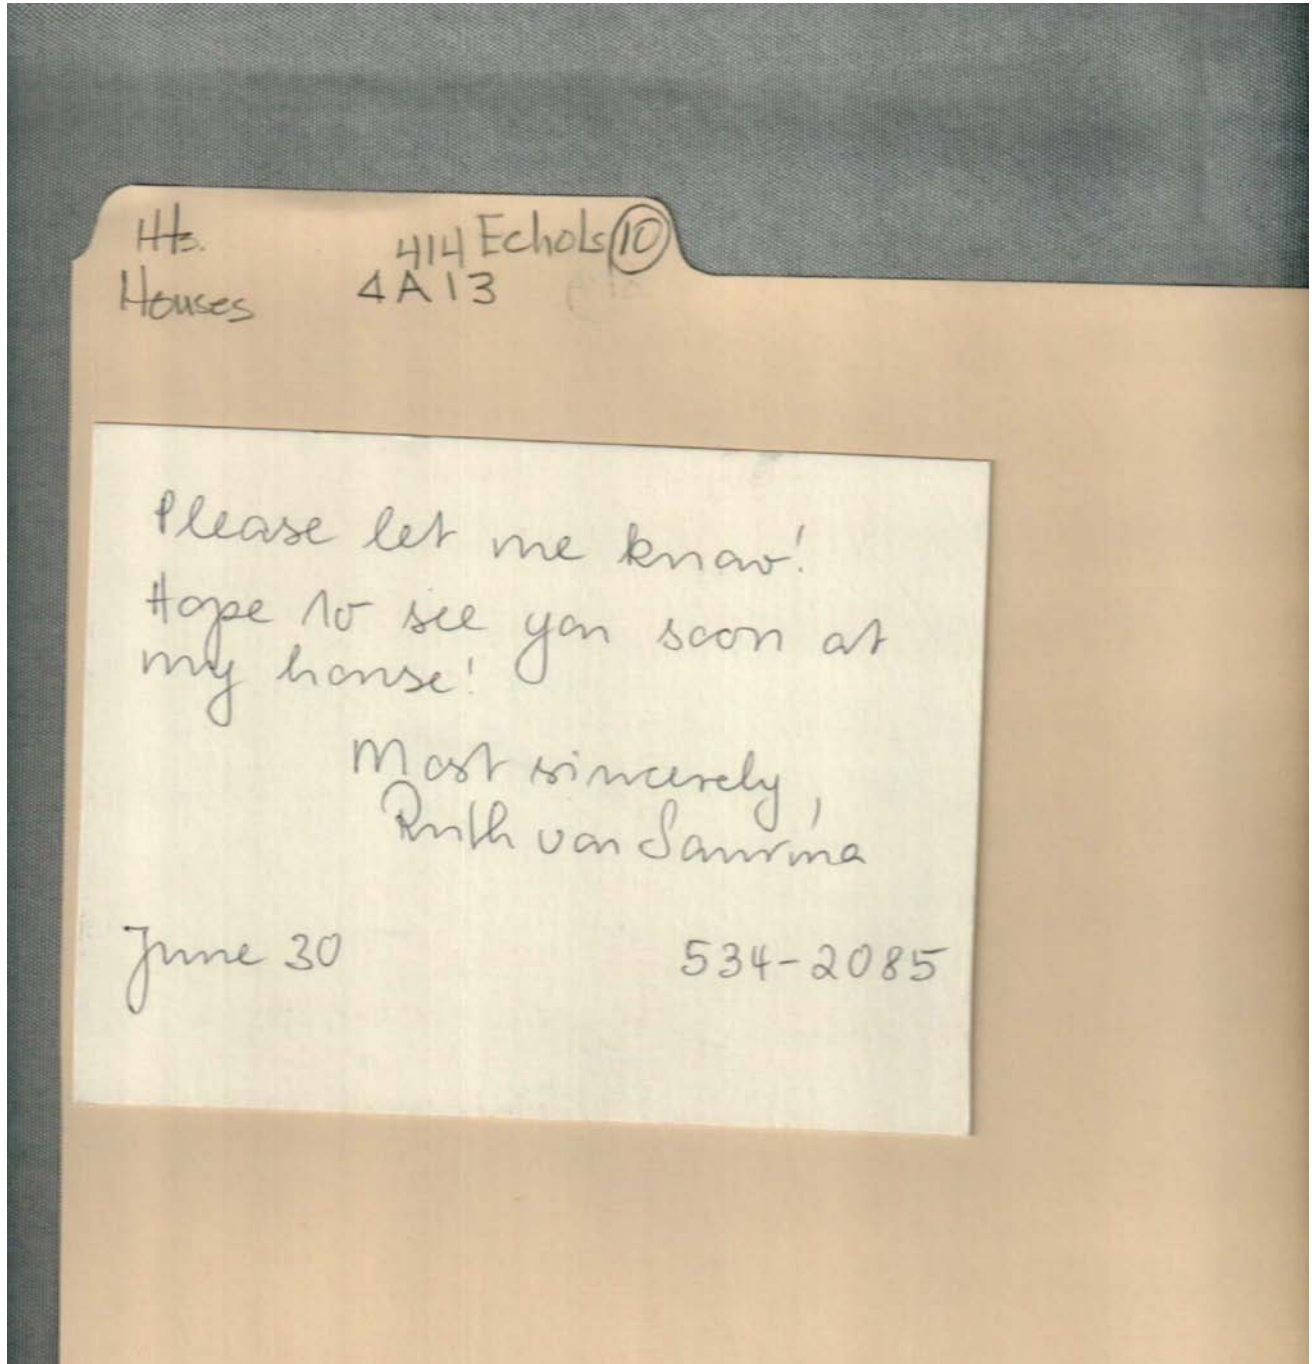 Hts. 414 Echols 10
Houses 4A13
Please let me know!
Hope to see you soon at
my house!
Most sincerely,
Ruth von Saurma
June 30 534-2085